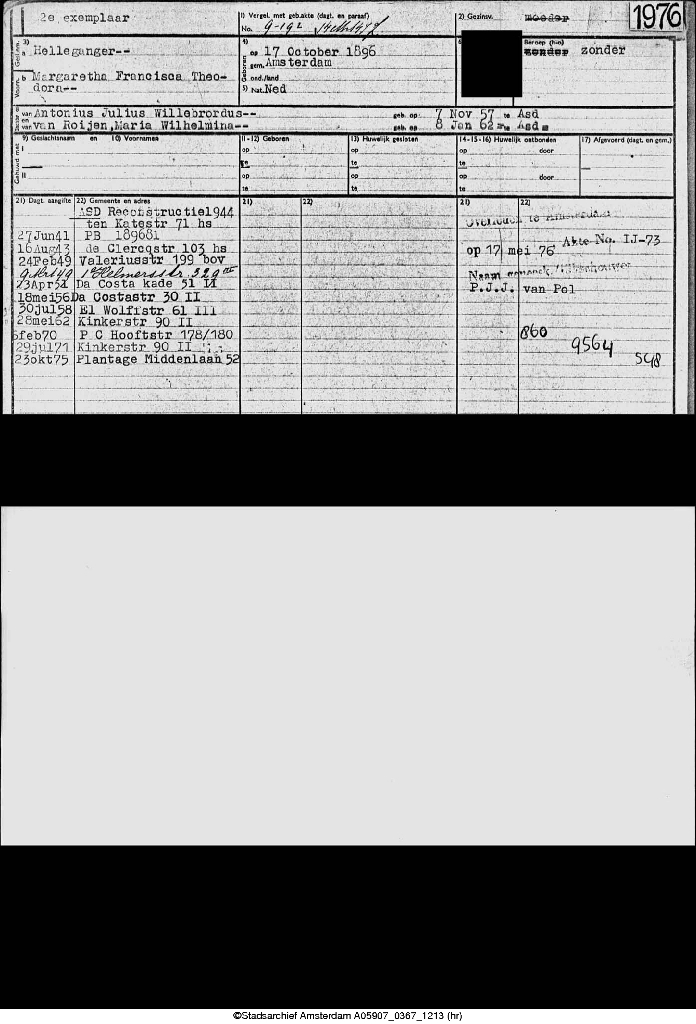 2e exemplaar
1) Vergel. met geb.akte (dagt. en paraaf)
No. 9-192
2) Gezinsv.
moeder
1976
3)
Gesln.
a Helleganger--
Voorn.
b Margaretha Francisca Theo-
dora--
4)
Geboren
op 17 October 1896
gem. Amsterdam
ond./land
5) Nat. Ned
6
Beroep (hfn)
zonder zonder
van Antonius Julius Willebrordus-- geb. op: 7 Nov 57 te Asd
en
van van Roijen, Maria Wilhelmina-- geb. op 8 Jan 62 te Asd
9) Geslachtsnaam en 10) Voornamen
11-12) Geboren
13) Huwelijk gesloten
14-15-16) Huwelijk ontbonden
17) Afgevoerd (dagt. en gem.)
Gehuwd met
I
op
te
op
te
op door
te
II
op
te
op
te
op door
te
21) Dagt. aangifte 22) Gemeente en adres
21) 22)
21) 22)
ASD Reconstructie1944
ten Katestr 71 hs
27Jun41 PB 189681
16Aug43 de Clercqstr 103 hs
24Feb49 Valeriusstr 199 bov
9 Mrt 49 1e Helmersstr. 329
23Apr51 Da Costa kade 51 II
18mei56 Da Costastr 30 II
30jul58 El Wolffstr 61 III
28mei62 Kinkerstr 90 II
6feb70 P C Hooftstr 178/180
29jul71 Kinkerstr 90 II
23okt75 Plantage Middenlaan 52
Overleden te Amsterdam
op 17 mei 76 Akte No. IJ-73
Naam
P.J.J. van Pol
860
9564
548
©Stadsarchief Amsterdam A05907_0367_1213 (hr)